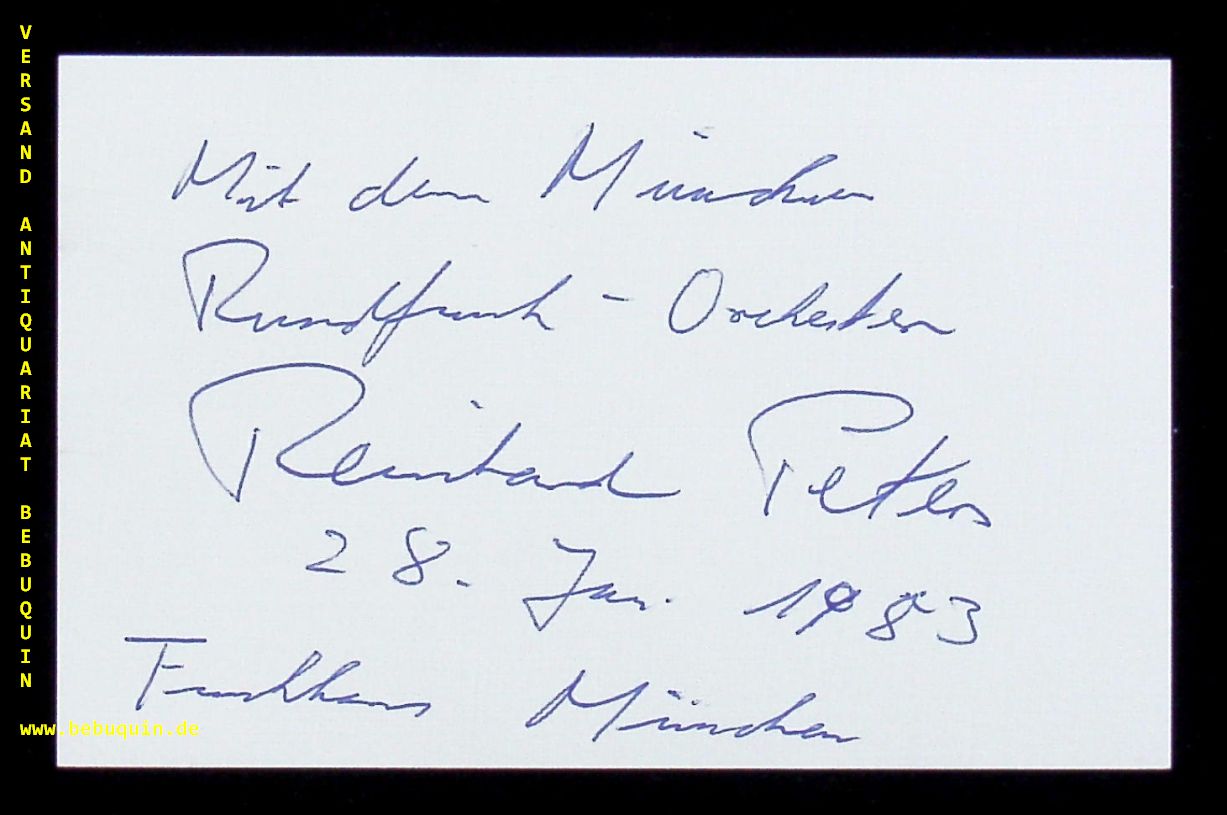 VERSAND ANTIQUARIAT BEBUQUIN
Mit dem Münchner
Rundfunk-Orchester
Reinhard Peters
28. Jan. 1983
Funkhaus München
www.bebuquin.de